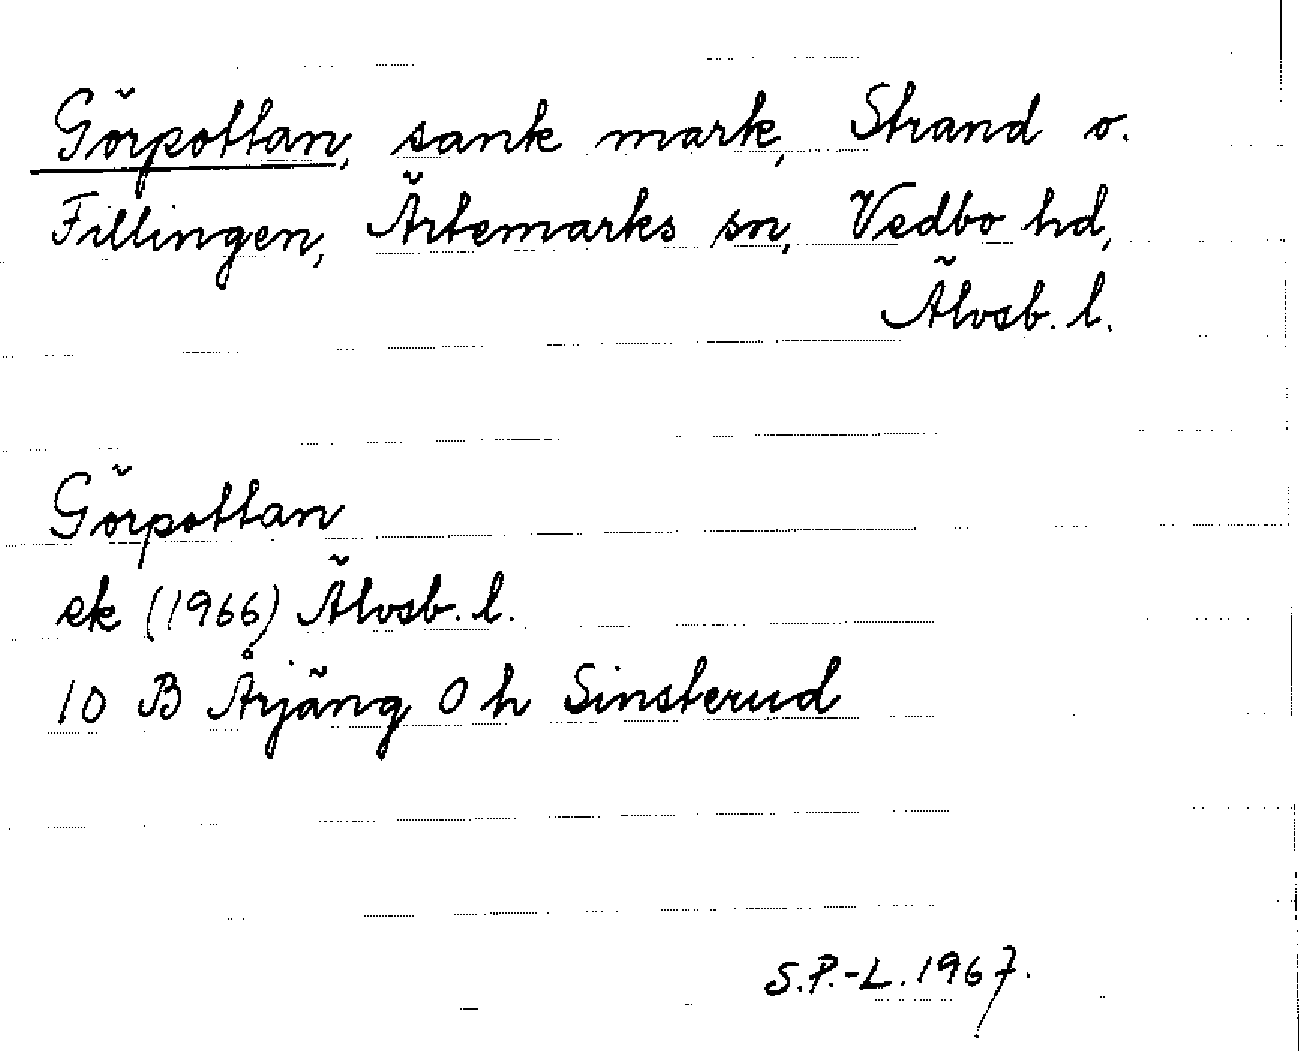 Görpottan, sank mark, Strand o.
Fillingen, Ärtemarks sn, Vedbo hd,
Älvsb. l.
Görpottan
ek (1966) Älvsb. l.
10 B Årjäng 0 h Sinsterud
S.P.-L. 1967.